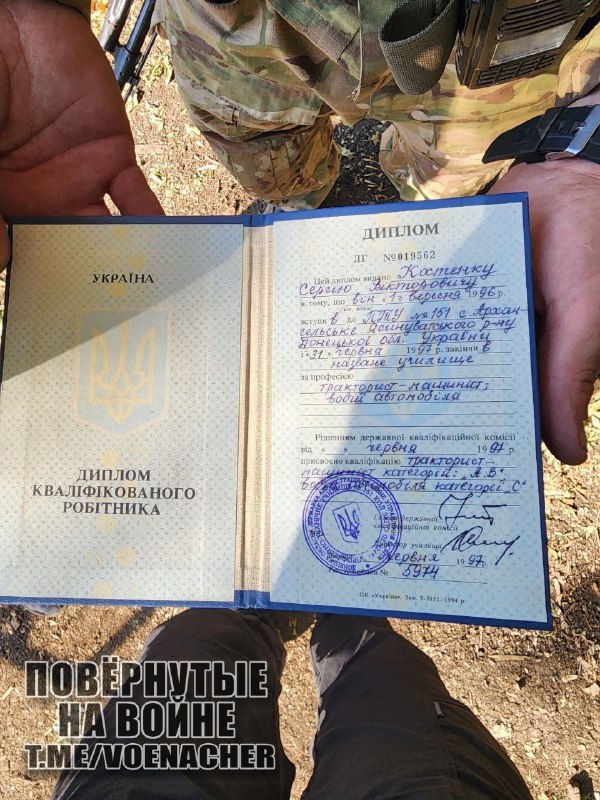 УКРАЇНА
ДИПЛОМ
КВАЛІФІКОВАНОГО
РОБІТНИКА
ДИПЛОМ
ДГ №019562
Цей диплом видано Костенку
Сергію Вікторовичу
в тому, що він "1" вересня 1996 р.
вступив до ПТУ №151 с. Архан-
гельське Ясинуватського р-ну
Донецької обл. України
і "31" червня 1997 р. закінчив
назване училище
за професією
тракторист-машиніст;
водій автомобіля
Рішенням державної кваліфікаційної комісії
від « » червня 1997 р.
присвоєно кваліфікацію тракторист-
машиніст категорій: „А.В"
водій автомобіля категорії „С"
Голова державної
кваліфікаційної комісії
Директор училища
червня 1997 р.
Реєстраційний № 5974
ПК «Україна». Зам. 1994 р.
ПОВЁРНУТЫЕ
НА ВОЙНЕ
T.ME/VOENACHER